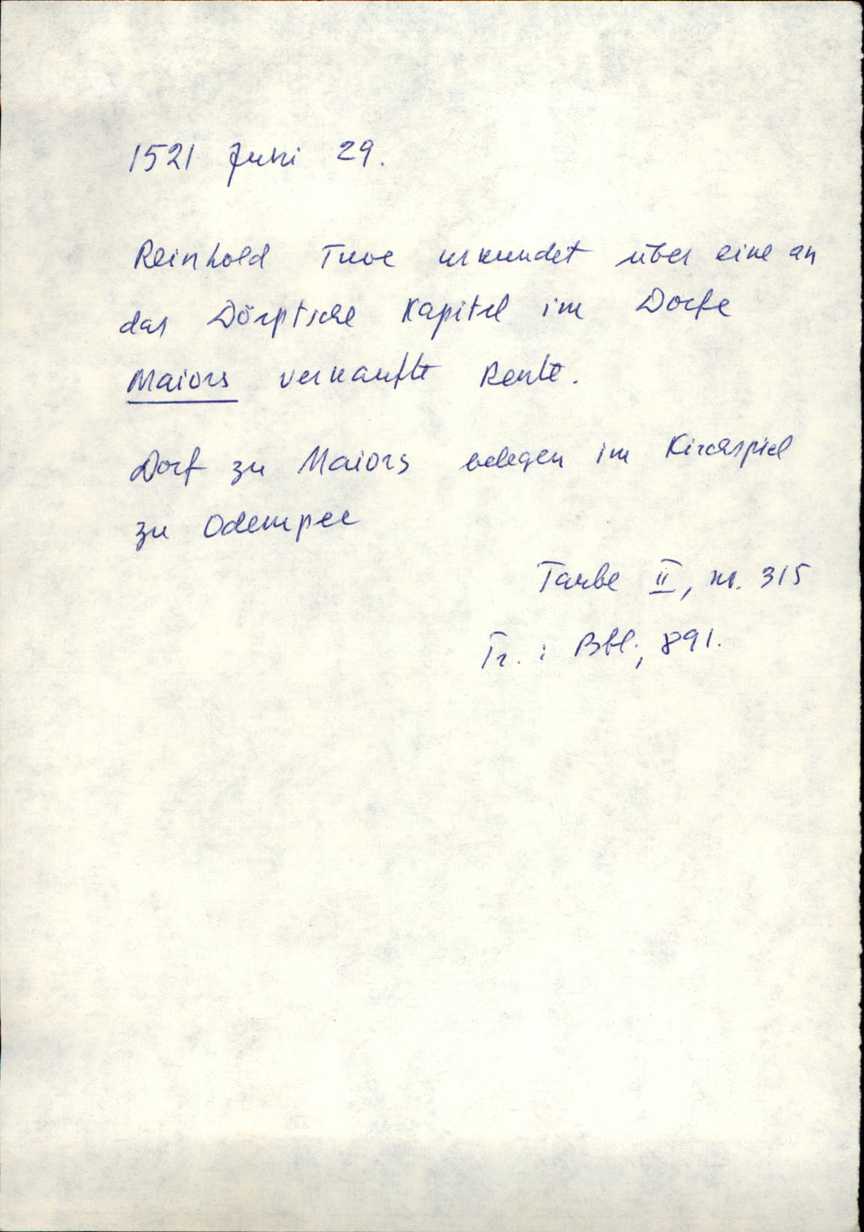 1521 Juni 29.
Reinhold Tuve urkundet über eine an
das Dörptsche Kapitel im Dorfe
Maiors verkaufte Rente.
Dorf zu Maiors belegen im Kirchspiel
zu Odempee
Taube II, nr. 315
Tr.: Bbl., 891.